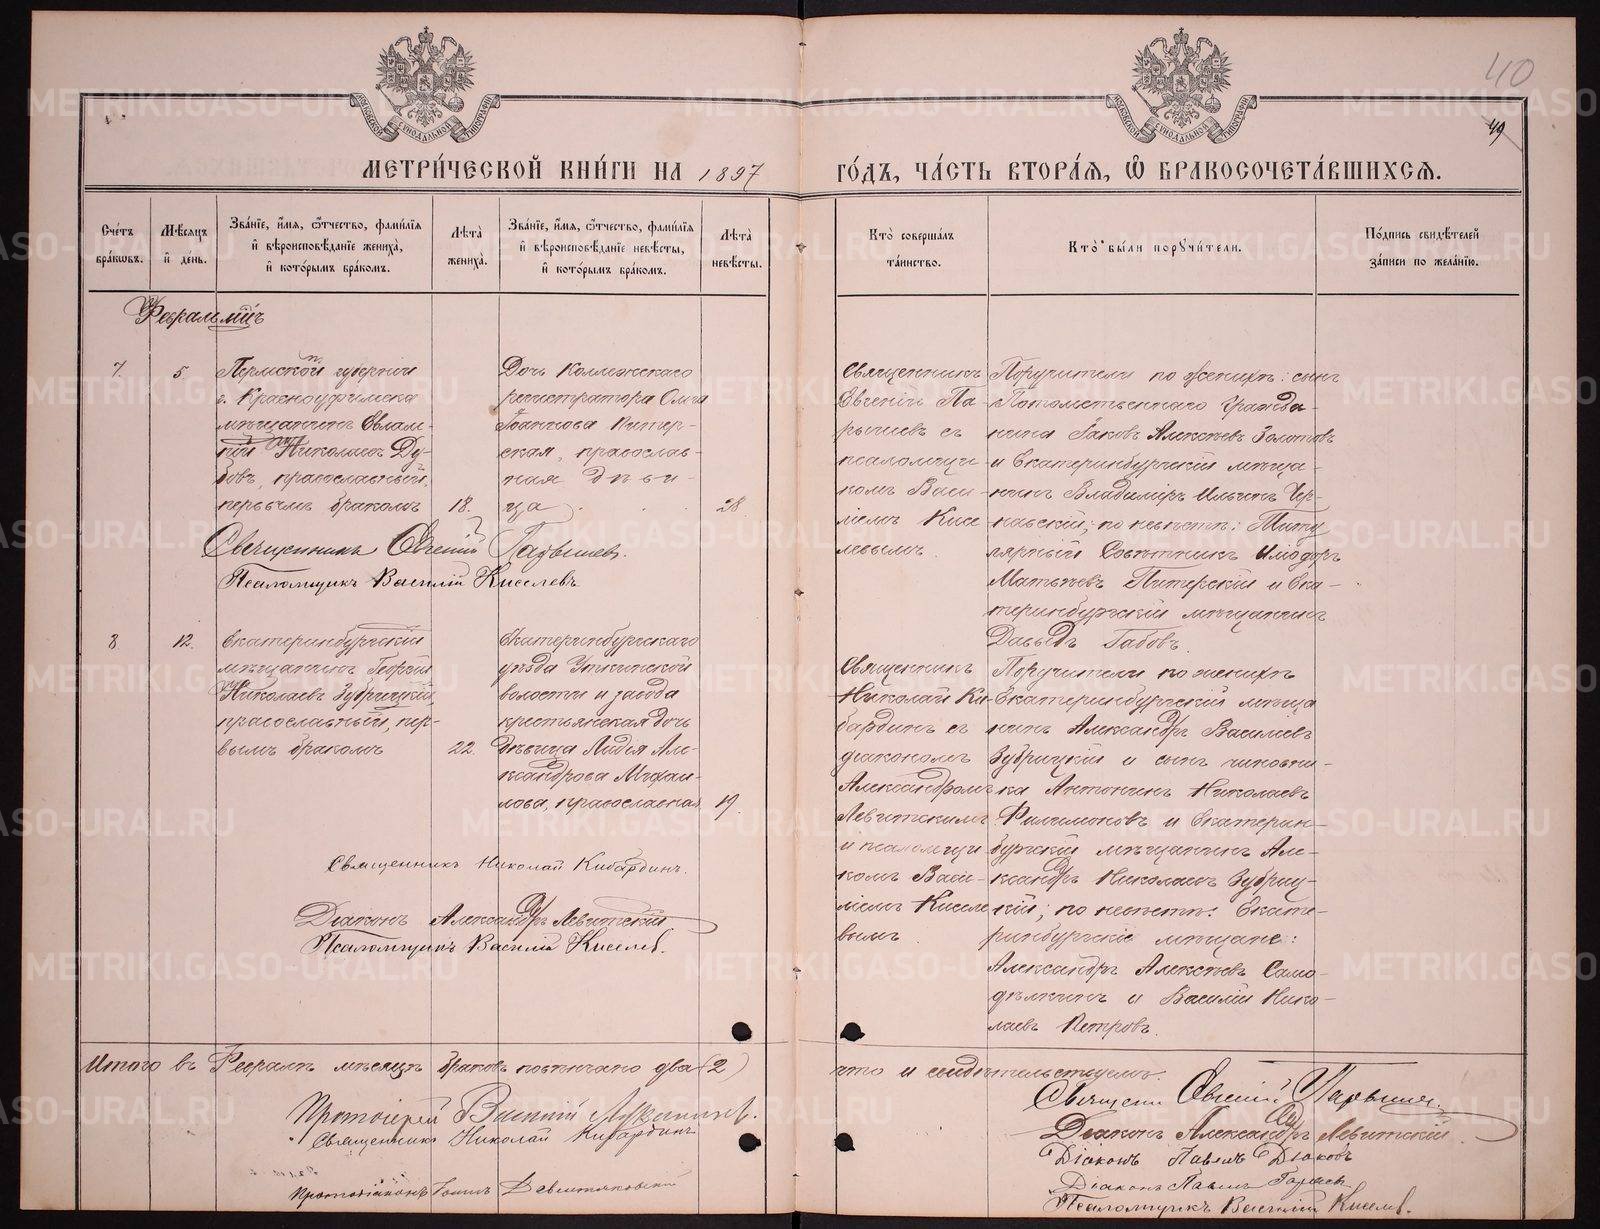 40
49
МЕТРИ́ЧЕСКОЙ КНИ́ГИ НА 1897 ГО́ДЪ, ЧА́СТЬ ВТОРА́Я, Ѽ БРАКОСОЧЕТА́ВШИХСЯ.
Сче́тъ бра́кѡвъ.
Мѣ́сяцъ и҆ де́нь.
Зва́нїе, и҆́мя, ѻ҆́тчество, фами́лїя
и҆ вѣроисповѣ́данїе жениха̀,
и҆ кото́рымъ бра́комъ.
Лѣта̀ жениха̀.
Зва́нїе, и҆́мя, ѻ҆́тчество, фами́лїя
и҆ вѣроисповѣ́данїе невѣ́сты,
и҆ кото́рымъ бра́комъ.
Лѣта̀ невѣ́сты.
Кто̀ соверша́лъ
та́инство.
Кто̀ бы́ли порꙋчи́тели.
По́дпись свидѣ́телей
за́писи по жела́нїю.
Февраль мѣ
7.
5.
Пермской губерніи
г. Красноуфимска
мѣщанинъ Евлам-
пій Николаевъ Ду-
бовъ, православный,
первымъ бракомъ
18.
Дочь Коллежскаго
регистратора Ольга
Іоаннова Питер-
ская, православ-
ная дѣви-
ца
28
Священникъ
Евгеній Па-
рышевъ съ
псаломщи
комъ Васи-
ліемъ Кисе
левымъ.
Поручители по женихѣ: сынъ
Потомственнаго Гражда-
нина Іаковъ Алексѣевъ Золотовъ
и Екатеринбургскій мѣща-
нинъ Владиміръ Ильинъ Чер-
навскій; по невѣстѣ: Титу
лярный Совѣтникъ Иліодоръ
Матѳеевъ Питерскій и Ека-
теринбургскій мѣщанинъ
Давыдъ Бабовъ.
Священникъ Евгеній Парышевъ.
Псаломщикъ Василій Киселевъ
8
12.
Екатеринбургскій
мѣщанинъ Георгій
Николаевъ Зубрицкій,
православный, пер-
вымъ бракомъ
22.
Екатеринбургскаго
уѣзда Уткинской
волости и завода
крестьянская дочь
дѣвица Лидія Але-
ксандрова Михаи-
лова, православная
19.
Священникъ
Николай Ки-
бардинъ съ
діакономъ
Александромъ
Левитскимъ
и псаломщи
комъ Васи-
ліемъ Киселе
вымъ
Поручители по женихѣ
Екатеринбургскій мѣща
нинъ Александръ Василіевъ
Зубрицкій и сынъ чиновни-
ка Антонинъ Николаевъ
Филимоновъ и Екатерин-
бургскій мѣщанинъ Але-
ксандръ Николаевъ Зубриц-
кій; по невѣстѣ: Екате-
ринбургскіе мѣщане:
Александръ Алексѣевъ Само-
дѣлкинъ и Василій Нико-
лаевъ Петровъ.
Священникъ Николай Кибардинъ.
Діаконъ Александръ Левитскій
Псаломщикъ Василій Киселев.
Итого въ Февралѣ мѣсяцѣ браковъ повѣнчано два (2) что и свидѣтельствуемъ.
Протоіерей
Священникъ Николай Кибардинъ
Протодіаконъ
Священ. Евгеній Парышев.
Діаконъ Александръ Левитскій.
Діаконъ Павелъ Дьяковъ
Діаконъ Павелъ
Псаломщикъ Василій Киселев.